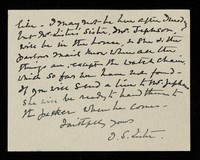 like - I may not be here after Tuesday
but Mr Lister's Sister, Mrs Jephson,
will be in the house, & She & the
Parlour Maid know where all the
things are, except the watch chain,
which so far we have not found -
If you will send a line to Mrs Jephson
She will be ready to hand them to
the Packer when he comes -
Faithfully yours